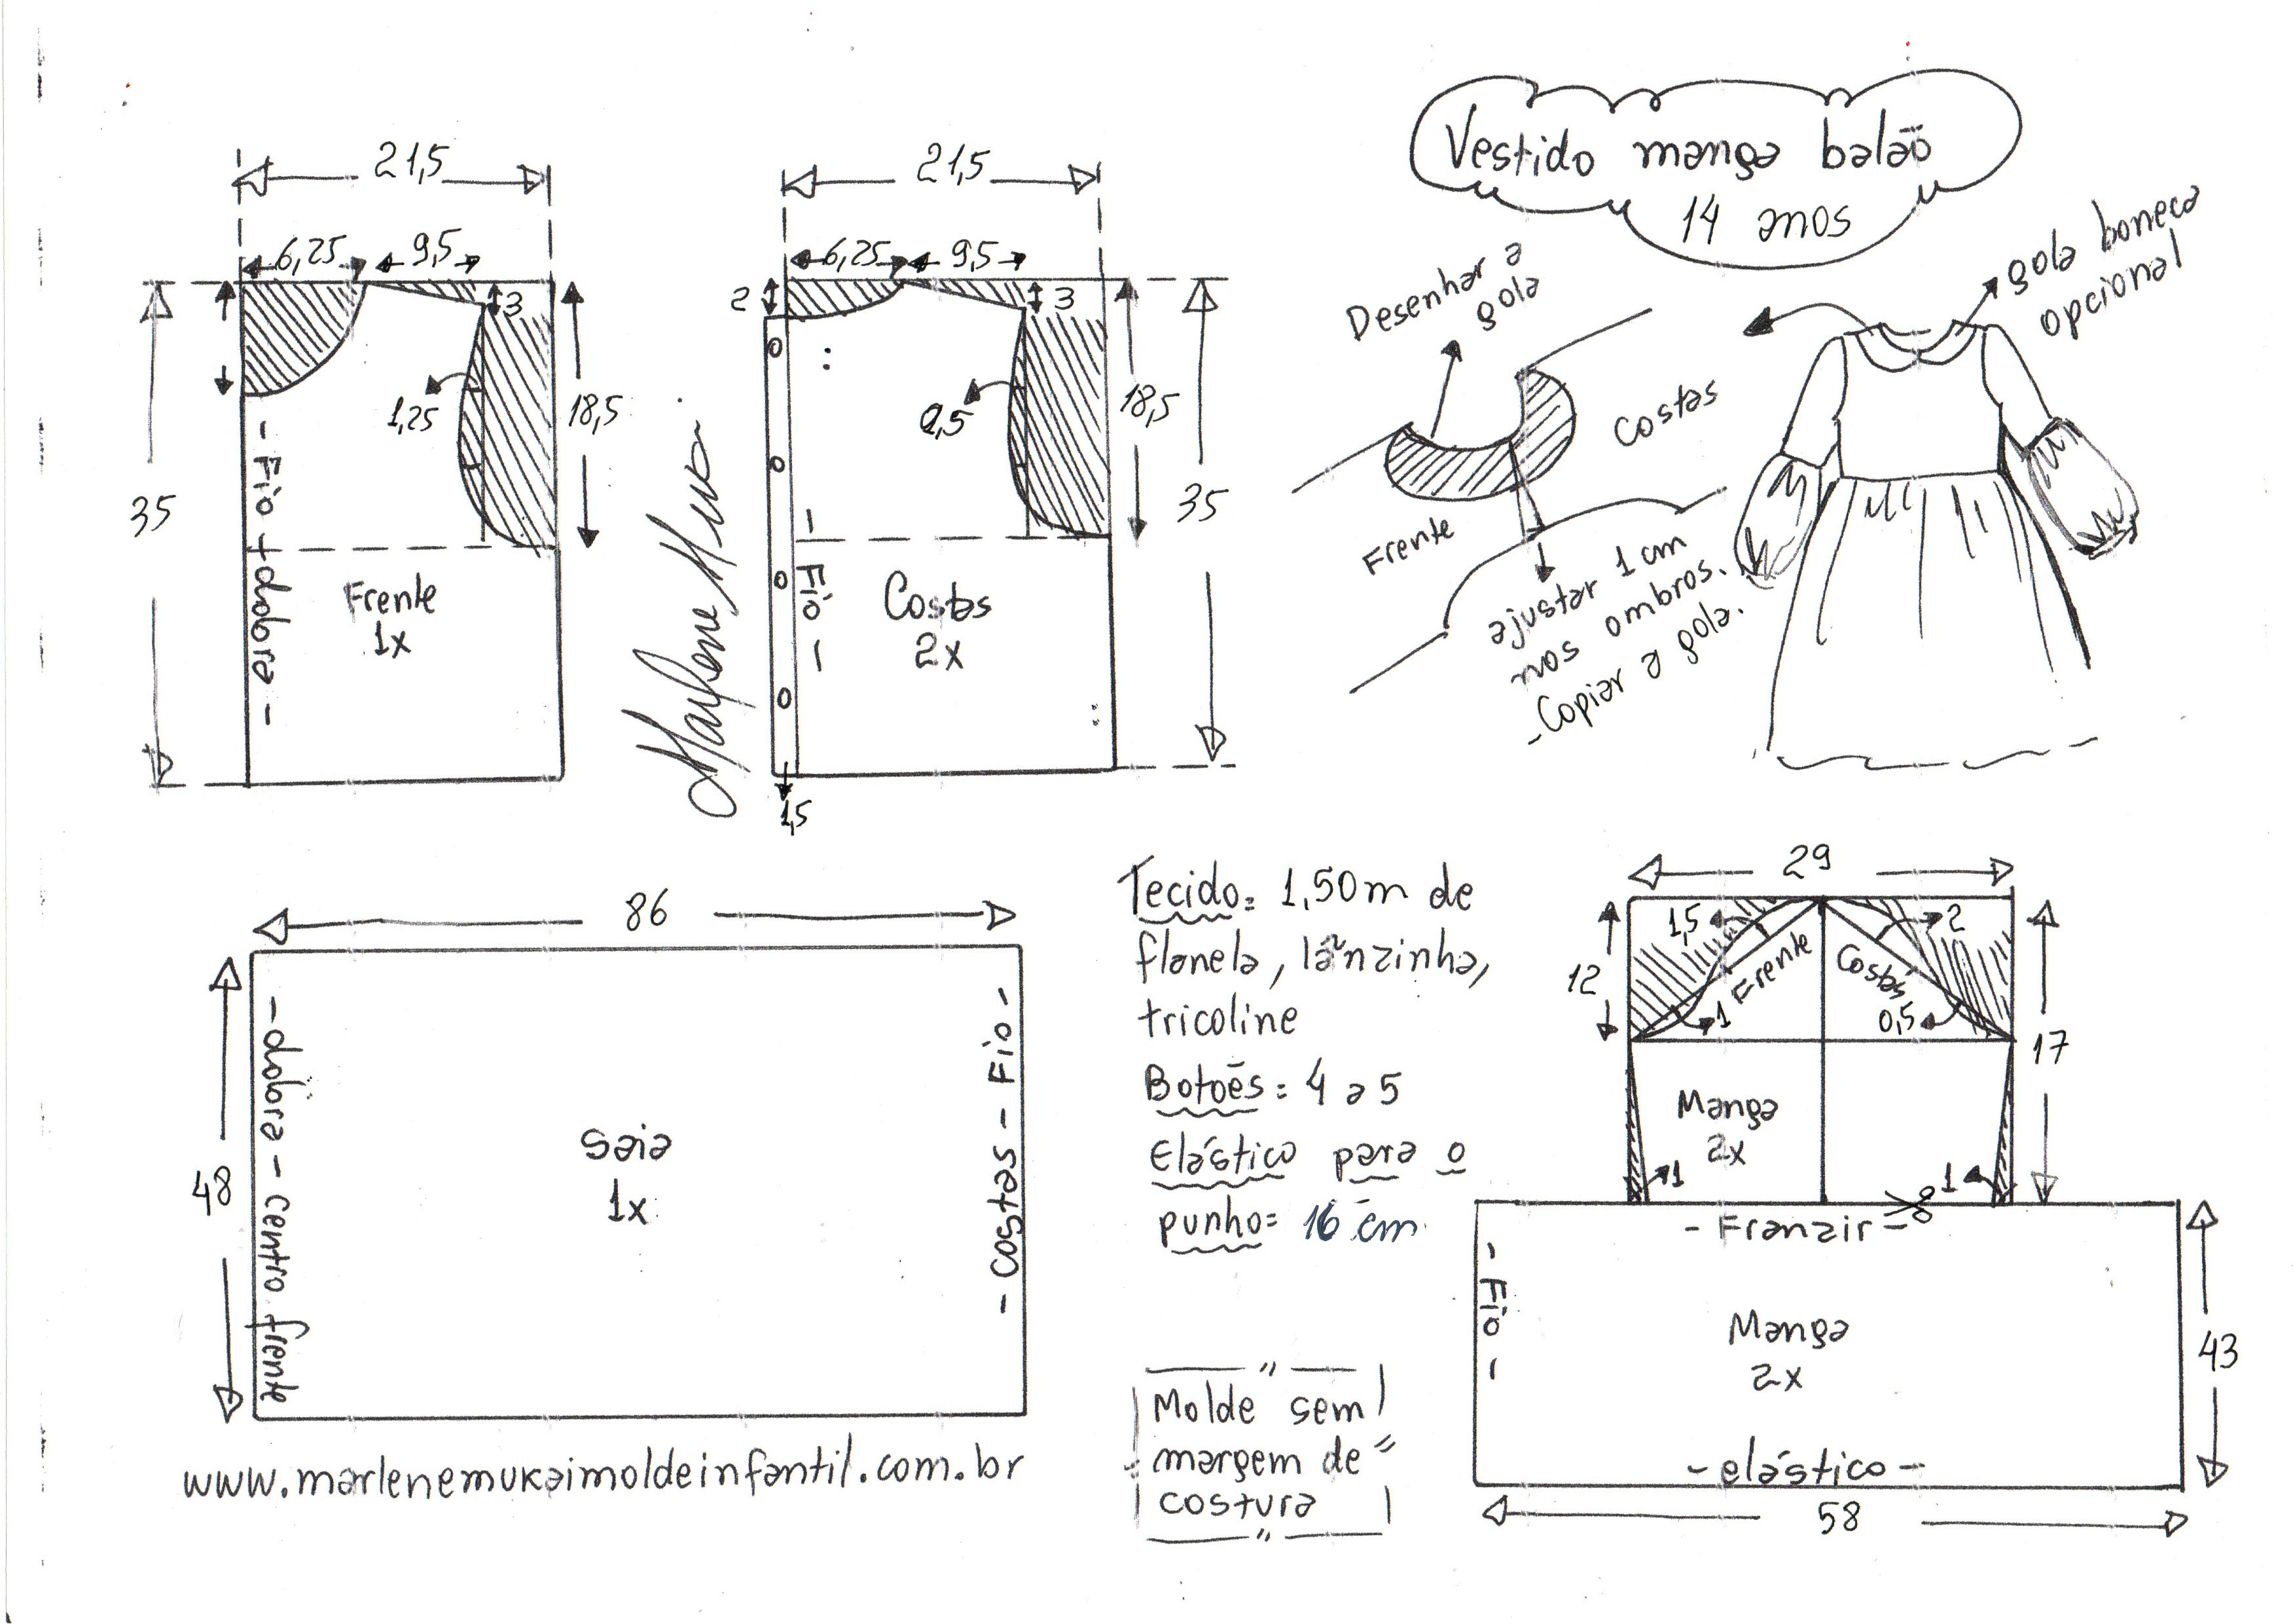 Vestido manga balão
14 anos
21,5
6,25
9,5
3
1,25
18,5
35
- Fio + dobra -
Frente
1x
21,5
2
6,25
9,5
3
0,5
18,5
35
- Fio -
Costas
2x
1,5
Marlene Mukai
Desenhar a
gola
Costas
Frente
ajustar 1 cm
nos ombros.
- Copiar a gola.
gola boneca
opcional
86
48
- dobra - centro frente
Saia
1x
- costas - Fio -
www.marlenemukaimoldeinfantil.com.br
Tecido= 1,50m de
flanela, lãnzinha,
tricoline
Botões= 4 a 5
Elástico para o
punho= 16 cm
Molde sem
margem de
costura
29
1,5
2
12
Frente
Costas
1
0,5
17
Manga
2x
1
1
- Franzir -
- Fio -
Manga
2x
43
- elástico -
58